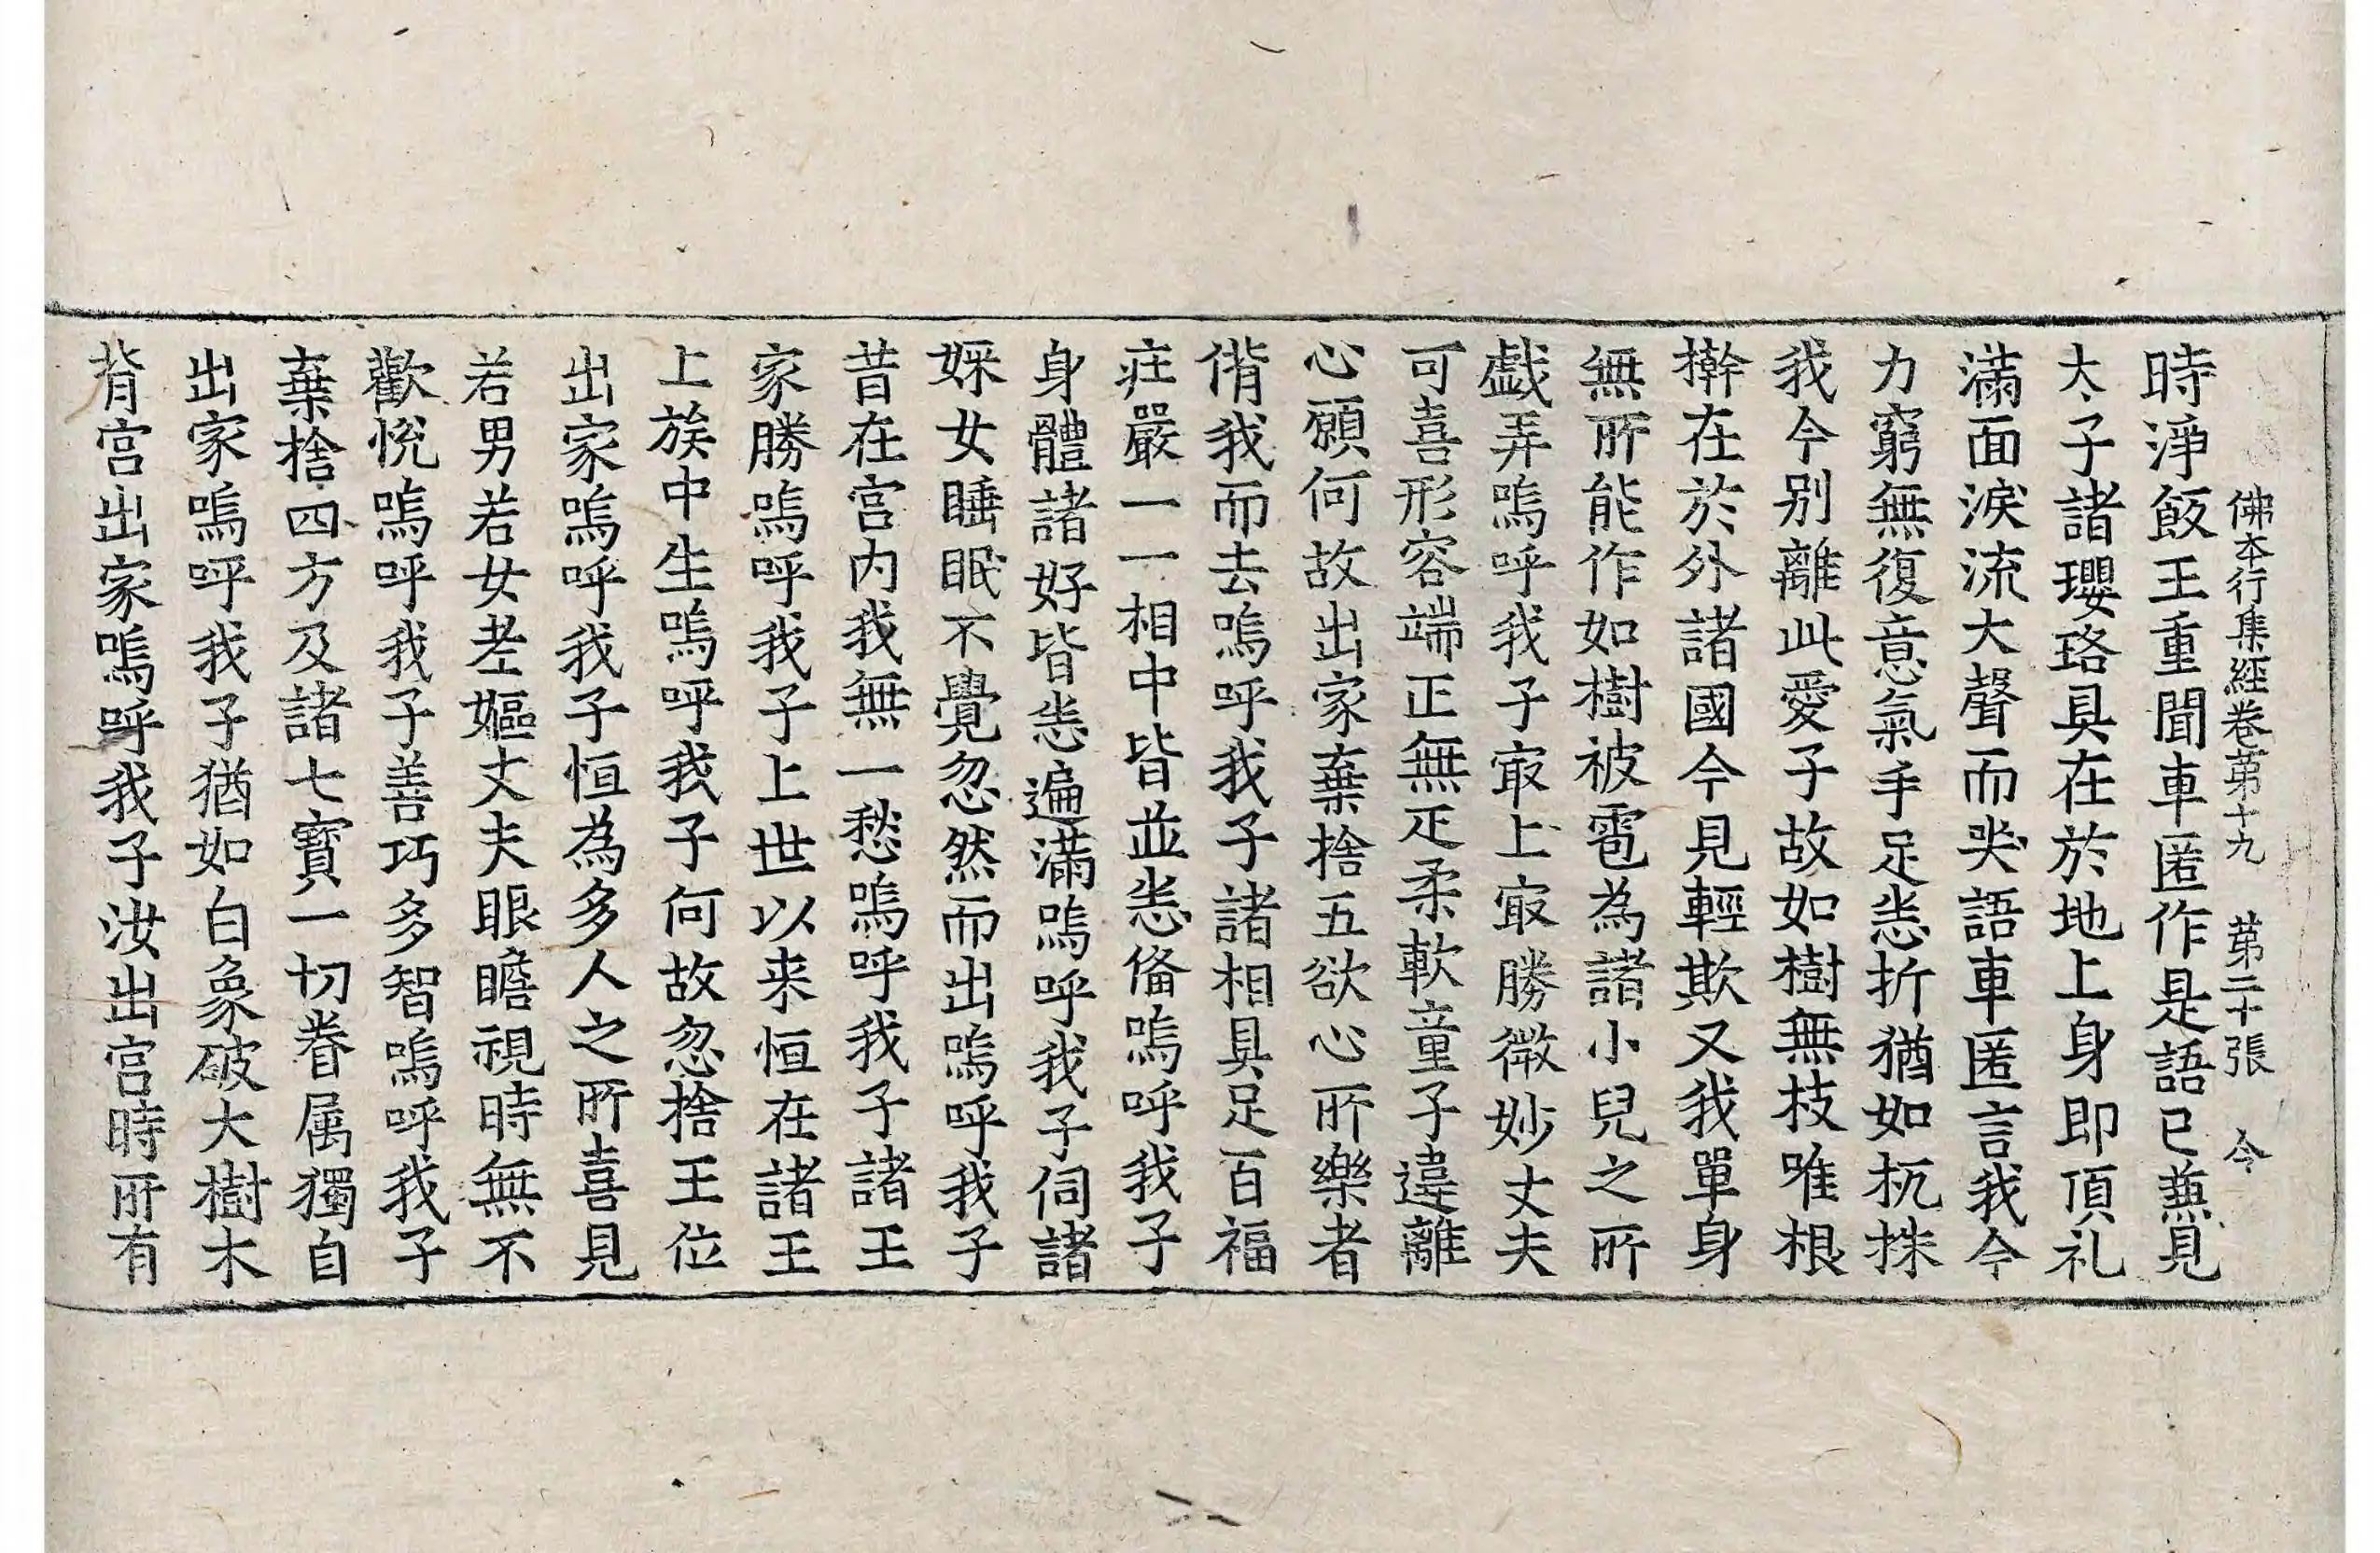 佛本行集經卷第十九 第二十張 今
時淨飯王重聞車匿作是語已蕪見
太子諸瓔珞具在於地上身即頂礼
滿面淚流大聲而哭語車匿言我今
力窮無復意氣手足恙折猶如杌株
我今別離此愛子故如樹無枝唯根
擀在於外諸國今見輕欺又我單身
無所能作如樹被雹為諸小兒之所
戲弄嗚呼我子㝡上㝡勝微妙丈夫
可喜形容端正無疋柔軟童子違離
心願何故出家棄捨五欲心所樂者
偝我而去嗚呼我子諸相具足百福
庄嚴一一相中皆並恙俻嗚呼我子
身體諸好皆恙遍滿嗚呼我子伺諸
婇女睡眠不覺忽然而出嗚呼我子
昔在宮內我無一愁嗚呼我子諸王
家勝嗚呼我子上世以来恒在諸王
上族中生嗚呼我子何故忽捨王位
出家嗚呼我子恒為多人之所喜見
若男若女老嫗丈夫眼瞻視時無不
歡悅嗚呼我子善巧多智嗚呼我子
棄捨四方及諸七寶一切眷属獨自
出家嗚呼我子猶如白象破大樹木
背宮出家嗚呼我子汝出宮時所有